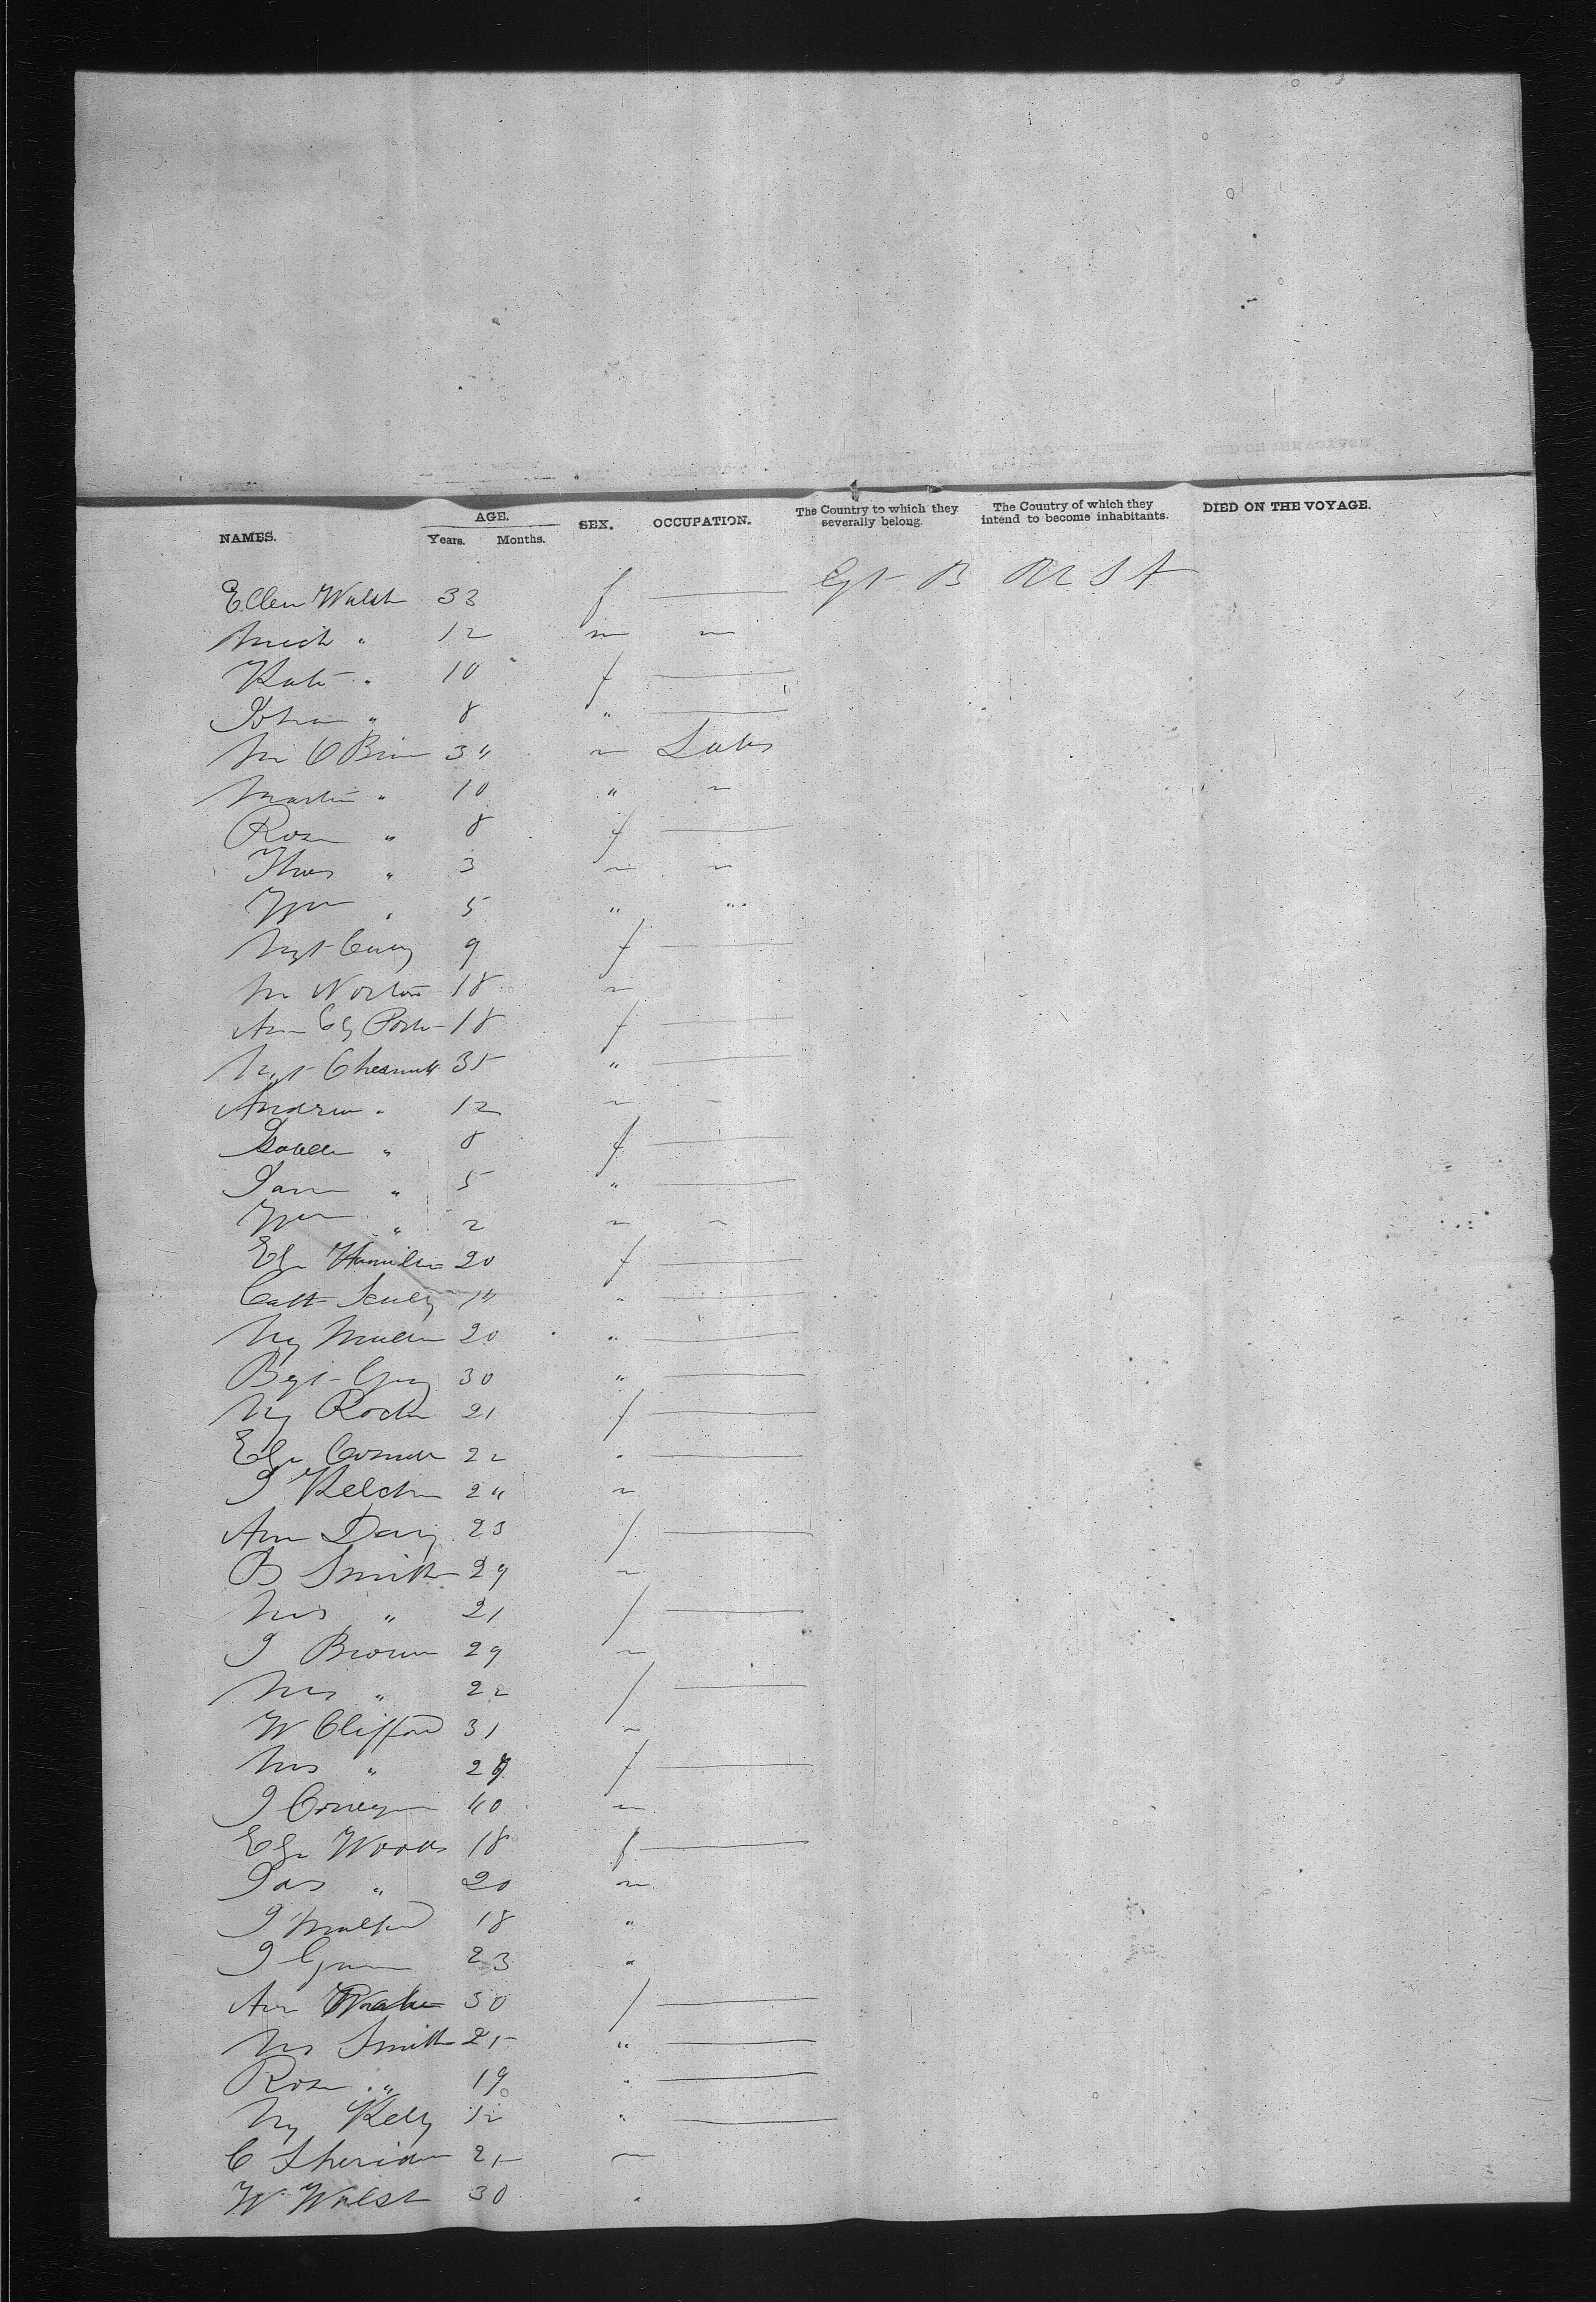 NAMES. AGE. Years. Months. SEX. OCCUPATION. The Country to which they severally belong. The Country of which they intend to become inhabitants. DIED ON THE VOYAGE.
Ellen Walsh 33 f — Gt B U S A
Mich " 12 m "
Kate " 10 f —
Johan " 8 " —
M O Brien 34 m Labr
Martin " 10 " "
Rose " 8 f —
Thos " 3 m "
Wm " 5 " "
Mgt 9 f —
M Norton 18 m
Ann Porter 18 f —
Mgt Chesnutt 35 " —
Andrew " 12 m "
Isabella " 8 f —
Jane " 5 " —
Wm " 2 m "
Elz Hamilton 20 f —
Cath Scully " —
My Mullen 20 " —
Bgt 30 " —
My Roche 21 f —
Elz Connell 22 " —
J 24 m
Ann Davy 23 f —
B Smith 29 m
Mrs " 21 f —
J Brown 29 m
Mrs " 22 f —
W Clifford 31 m
Mrs " f —
J 40 m
Elz Woods 18 f —
Jas " 20 m
J 18 "
J 23 "
Ann 30 f —
Ms Smith 25 " —
Rose " 19 " —
My Kelly 12 " —
C Sheridan 25 m
W Walsh 30 "